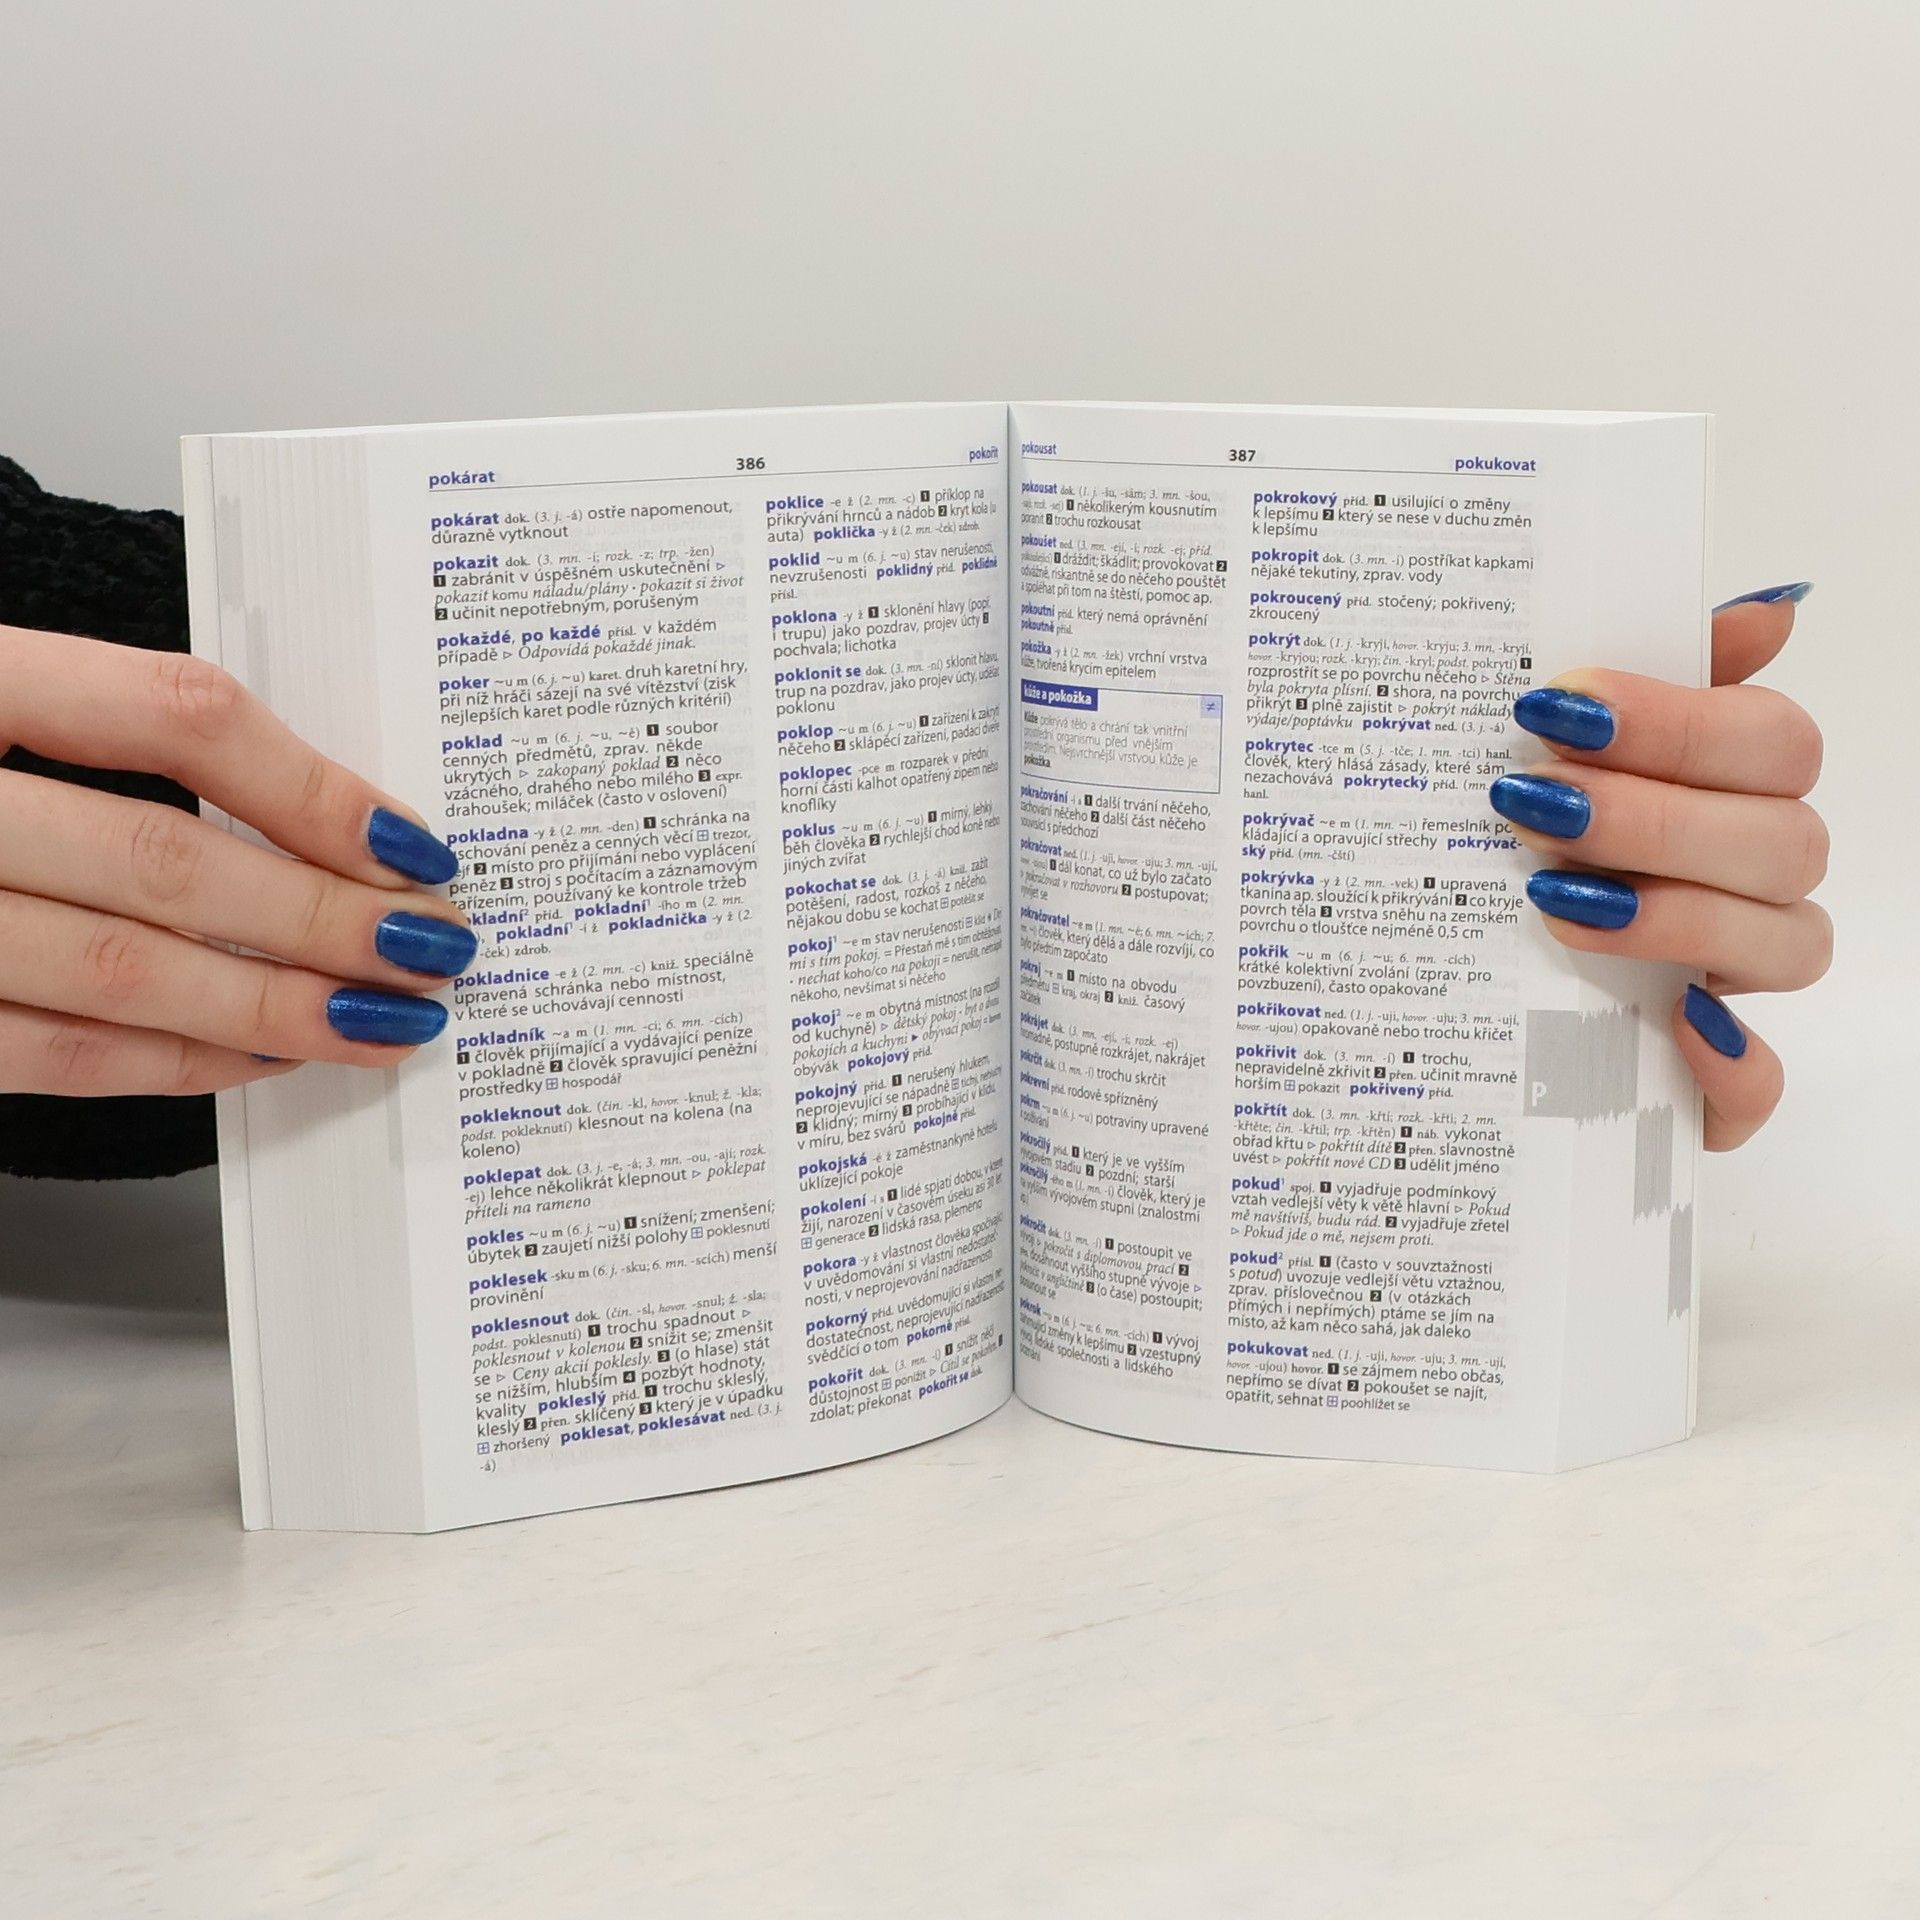 pokárat 386 pokořit
pokárat dok. (3. j. -á) ostře napomenout,
důrazně vytknout
pokazit dok. (3. mn. -í; rozk. -z; trp. -žen)
1 zabránit v úspěšném uskutečnění ▷
pokazit komu náladu/plány · pokazit si život
2 učinit nepotřebným, porušeným
pokaždé, po každé přísl. v každém
případě ▷ Odpovídá pokaždé jinak.
poker ~u m (6. j. ~u) karet. druh karetní hry,
při níž hráči sázejí na své vítězství (zisk
nejlepších karet podle různých kritérií)
poklad ~u m (6. j. ~u, ~ě) 1 soubor
cenných předmětů, zprav. někde
ukrytých ▷ zakopaný poklad 2 něco
vzácného, drahého nebo milého 3 expr.
drahoušek; miláček (často v oslovení)
pokladna -y ž (2. mn. -den) 1 schránka na
uschování peněz a cenných věcí ⊞ trezor,
2 místo pro přijímání nebo vyplácení
peněz 3 stroj s počítacím a záznamovým
zařízením, používaný ke kontrole tržeb
pokladní² příd. pokladní¹ -ího m (2. mn.
pokladní¹ -í ž pokladnička -y ž (2.
-ček) zdrob.
pokladnice -e ž (2. mn. -c) kniž. speciálně
upravená schránka nebo místnost,
v které se uchovávají cennosti
pokladník ~a m (1. mn. -ci; 6. mn. -cích)
1 člověk přijímající a vydávající peníze
v pokladně 2 člověk spravující peněžní
prostředky ⊞ hospodář
pokleknout dok. (čin. -kl, hovor. -knul; ž. -kla;
podst. pokleknutí) klesnout na kolena (na
koleno)
poklepat dok. (3. j. -e, -á; 3. mn. -ou, -ají; rozk.
-ej) lehce několikrát klepnout ▷ poklepat
příteli na rameno
pokles ~u m (6. j. ~u) 1 snížení; zmenšení;
úbytek 2 zaujetí nižší polohy ⊞ poklesnutí
poklesek -sku m (6. j. -sku; 6. mn. -scích) menší
provinění
poklesnout dok. (čin. -sl, hovor. -snul; ž. -sla;
podst. poklesnutí) 1 trochu spadnout ▷
poklesnout v kolenou 2 snížit se; zmenšit
se ▷ Ceny akcií poklesly. 3 (o hlase) stát
se nižším, hlubším 4 pozbýt hodnoty,
kvality pokleslý příd. 1 trochu skleslý,
kleslý 2 přen. sklíčený 3 který je v úpadku
⊞ zhoršený poklesat, poklesávat ned. (3. j.
-á)
poklice -e ž (2. mn. -c) 1 příklop na
přikrývání hrnců a nádob 2 kryt kola (u
auta) poklička -y ž (2. mn. -ček) zdrob.
poklid ~u m (6. j. ~u) stav nerušenosti,
nevzrušenosti poklidný příd. poklidně
přísl.
poklona -y ž 1 sklonění hlavy (popř.
i trupu) jako pozdrav, projev úcty 2
pochvala; lichotka
poklonit se dok. (3. mn. -ní) sklonit hlavu,
trup na pozdrav, jako projev úcty, udělat
poklonu
poklop ~u m (6. j. ~u) 1 zařízení k zakrytí
něčeho 2 sklápěcí zařízení, padací dveře
poklopec -pce m rozparek v přední
horní části kalhot opatřený zipem nebo
knoflíky
poklus ~u m (6. j. ~u) 1 mírný, lehký
běh člověka 2 rychlejší chod koně nebo
jiných zvířat
pokochat se dok. (3. j. -á) kniž. zažít
potěšení, radost, rozkoš z něčeho,
nějakou dobu se kochat ⊞ potěšit se
pokoj¹ ~e m stav nerušenosti ⊞ klid
mi s tím pokoj. = Přestaň mě s tím obtěžovat.
· nechat koho/co na pokoji = nerušit, netrápit
někoho, nevšímat si něčeho
pokoj² ~e m obytná místnost (na rozdíl
od kuchyně) ▷ dětský pokoj · byt o dvou
pokojích a kuchyni ▸ obývací pokoj =
obývák pokojový příd.
pokojný příd. 1 nerušený hlukem,
neprojevující se nápadně ⊞ tichý, nehlučný
2 klidný; mírný 3 probíhající v klidu,
v míru, bez svárů pokojně přísl.
pokojská -é ž zaměstnankyně hotelu
uklízející pokoje
pokolení -í s 1 lidé spjatí dobou, v které
žijí, narození v časovém úseku asi 30 let
⊞ generace 2 lidská rasa, plemeno
pokora -y ž vlastnost člověka spočívající
v uvědomování si vlastní nedostateč-
nosti, v neprojevování nadřazenosti
pokorný příd. uvědomující si vlastní ne-
dostatečnost, neprojevující nadřazenost,
svědčící o tom pokorně přísl.
pokořit dok. (3. mn. -í) 1 snížit něčí
důstojnost ⊞ ponížit ▷ Cítil se pokořen. 2
zdolat; překonat pokořit se dok.
pokousat 387 pokukovat
pokousat dok. (1. j. -šu, -sám; 3. mn. -šou,
-sají; rozk. -sej) 1 několikerým kousnutím
poranit 2 trochu rozkousat
pokoušet ned. (3. mn. -ejí, -í; rozk. -ej; příd.
pokoušející) 1 dráždit; škádlit; provokovat 2
odvážně, riskantně se do něčeho pouštět
a spoléhat při tom na štěstí, pomoc ap.
pokoutní příd. který nemá oprávnění
pokoutně přísl.
pokožka -y ž (2. mn. -žek) vrchní vrstva
kůže, tvořená krycím epitelem
kůže a pokožka ≠
Kůže pokrývá tělo a chrání tak vnitřní
prostředí organismu před vnějším
prostředím. Nejsvrchnější vrstvou kůže je
pokožka.
pokračování -í s 1 další trvání něčeho,
zachování něčeho 2 další část něčeho
související s předchozí
pokračovat ned. (1. j. -uji, hovor. -uju; 3. mn. -ují,
hovor. -ujou) 1 dál konat, co už bylo začato
▷ pokračovat v rozhovoru 2 postupovat;
vyvíjet se
pokračovatel ~e m (1. mn. ~é; 6. mn. ~ích; 7.
mn. ~i) člověk, který dělá a dále rozvíjí, co
bylo předtím započato
pokraj ~e m 1 místo na obvodu
předmětu ⊞ kraj, okraj 2 kniž. časový
začátek
pokrájet dok. (3. mn. -ejí, -í; rozk. -ej)
hromadně, postupně rozkrájet, nakrájet
pokrčit dok. (3. mn. -í) trochu skrčit
pokrevní příd. rodově spřízněný
pokrm ~u m (6. j. ~u) potraviny upravené
k požívání
pokročilý příd. 1 který je ve vyšším
vývojovém stadiu 2 pozdní; starší
pokročilý -ého m (1. mn. -í) člověk, který je
na vyšším vývojovém stupni (znalostmi
pokročit dok. (3. mn. -í) 1 postoupit ve
vývoji ▷ pokročit s diplomovou prací 2
přen. dosáhnout vyššího stupně vývoje ▷
pokročit v angličtině 3 (o čase) postoupit;
posunout se
pokrok ~u m (6. j. ~u; 6. mn. -cích) 1 vývoj
zahrnující změny k lepšímu 2 vzestupný
vývoj lidské společnosti a lidského
poznání
pokrokový příd. 1 usilující o změny
k lepšímu 2 který se nese v duchu změn
k lepšímu
pokropit dok. (3. mn. -í) postříkat kapkami
nějaké tekutiny, zprav. vody
pokroucený příd. stočený; pokřivený;
zkroucený
pokrýt dok. (1. j. -kryji, hovor. -kryju; 3. mn. -kryjí,
hovor. -kryjou; rozk. -kryj; čin. -kryl; podst. pokrytí) 1
rozprostřít se po povrchu něčeho ▷ Stěna
byla pokryta plísní. 2 shora, na povrchu
přikrýt 3 plně zajistit ▷ pokrýt náklady
výdaje/poptávku pokrývat ned. (3. j. -á)
pokrytec -tce m (5. j. -tče; 1. mn. -tci) hanl.
člověk, který hlásá zásady, které sám
nezachovává pokrytecký příd. (mn.
hanl.
pokrývač ~e m (1. mn. ~i) řemeslník po-
kládající a opravující střechy pokrývač-
ský příd. (mn. -čští)
pokrývka -y ž (2. mn. -vek) 1 upravená
tkanina ap. sloužící k přikrývání 2 co kryje
povrch těla 3 vrstva sněhu na zemském
povrchu o tloušťce nejméně 0,5 cm
pokřik ~u m (6. j. ~u; 6. mn. -cích)
krátké kolektivní zvolání (zprav. pro
povzbuzení), často opakované
pokřikovat ned. (1. j. -uji, hovor. -uju; 3. mn. -ují,
hovor. -ujou) opakovaně nebo trochu křičet
pokřivit dok. (3. mn. -í) 1 trochu,
nepravidelně zkřivit 2 přen. učinit mravně
horším ⊞ pokazit pokřivený příd.
pokřtít dok. (3. mn. -křtí; rozk. -křti; 2. mn.
-křtěte; čin. -křtil; trp. -křtěn) 1 náb. vykonat
obřad křtu ▷ pokřtít dítě 2 přen. slavnostně
uvést ▷ pokřtít nové CD 3 udělit jméno
pokud¹ spoj. 1 vyjadřuje podmínkový
vztah vedlejší věty k větě hlavní ▷ Pokud
mě navštívíš, budu rád. 2 vyjadřuje zřetel
▷ Pokud jde o mě, nejsem proti.
pokud² přísl. 1 (často v souvztažnosti
s potud) uvozuje vedlejší větu vztažnou,
zprav. příslovečnou 2 (v otázkách
přímých i nepřímých) ptáme se jím na
místo, až kam něco sahá, jak daleko
pokukovat ned. (1. j. -uji, hovor. -uju; 3. mn. -ují,
hovor. -ujou) hovor. 1 se zájmem nebo občas,
nepřímo se dívat 2 pokoušet se najít,
opatřit, sehnat ⊞ poohlížet se
P